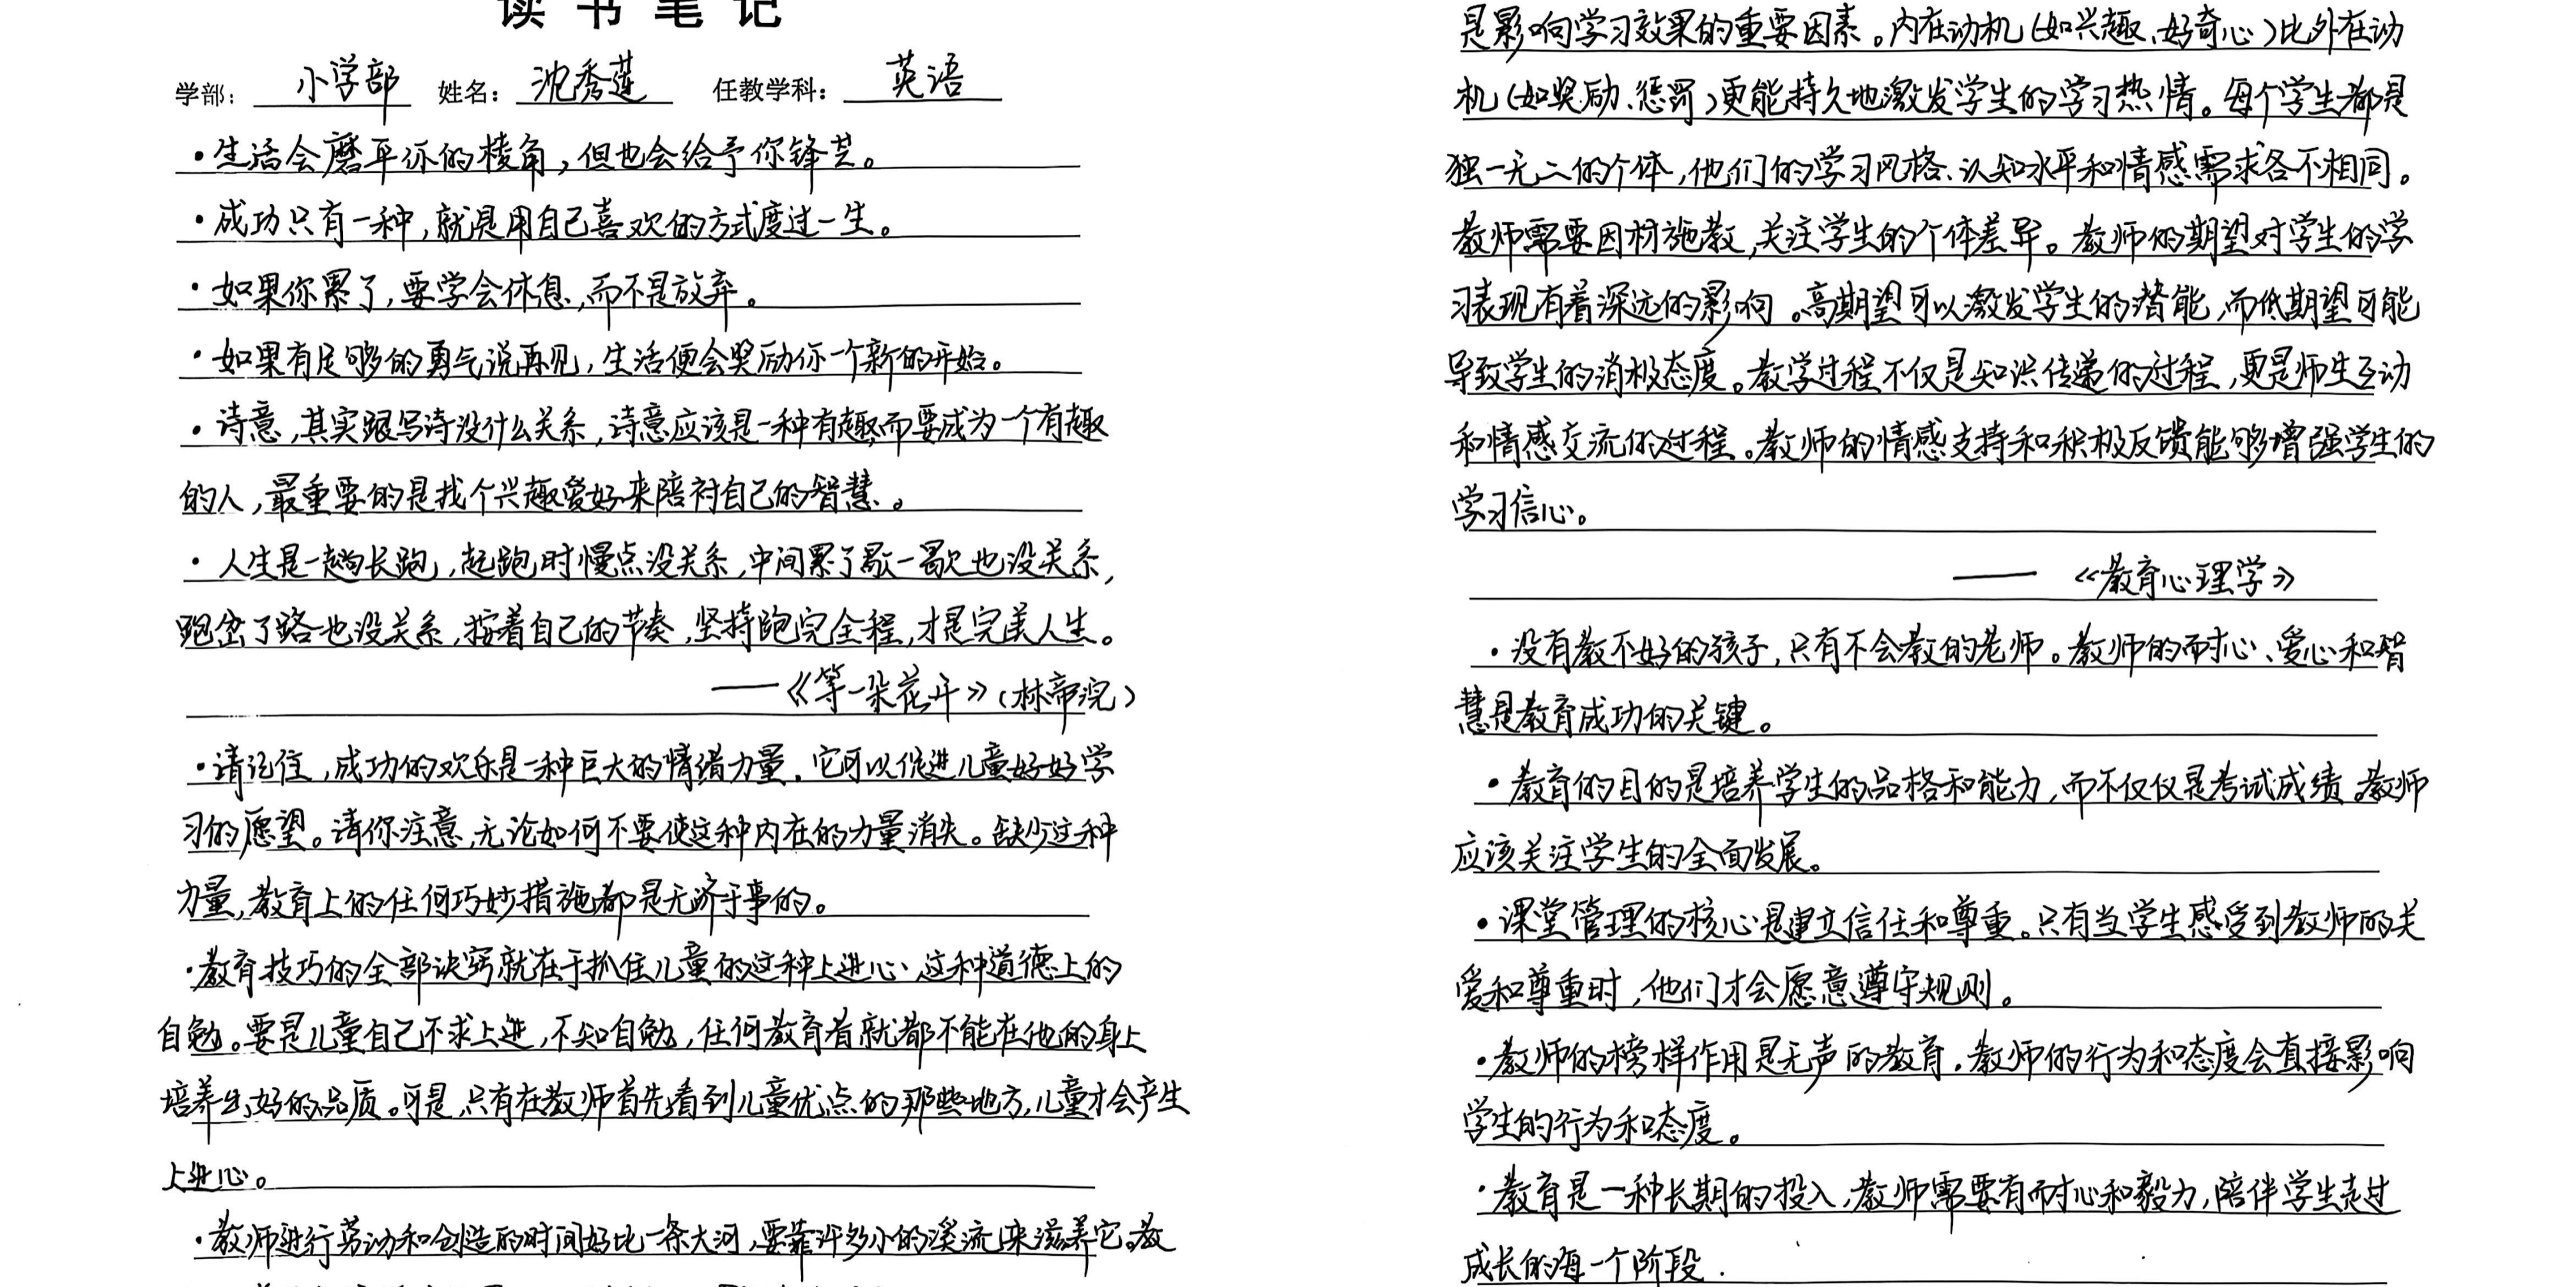 读书笔记
学部: 小学部 姓名: 沈秀莲 任教学科: 英语
·生活会磨平你的棱角,但也会给予你锋芒。
·成功只有一种,就是用自己喜欢的方式度过一生。
·如果你累了,要学会休息,而不是放弃。
·如果有足够的勇气说再见,生活便会奖励你一个新的开始。
·诗意,其实跟写诗没什么关系,诗意应该是一种有趣,而要成为一个有趣
的人,最重要的是找个兴趣爱好来陪衬自己的智慧。
·人生是一趟长跑,起跑时慢点没关系,中间累了歇一歇也没关系,
跑岔了路也没关系,按着自己的节奏,坚持跑完全程,才是完美人生。
——《等一朵花开》(林帝浣)
·请记住,成功的欢乐是一种巨大的情绪力量,它可以促进儿童好好学
习的愿望。请你注意,无论如何不要使这种内在的力量消失。缺少这种
力量,教育上的任何巧妙措施都是无济于事的。
·教育技巧的全部诀窍就在于抓住儿童的这种上进心,这种道德上的
自勉。要是儿童自己不求上进,不知自勉,任何教育者就都不能在他的身上
培养出好的品质。可是,只有在教师首先看到儿童优点的那些地方,儿童才会产生
上进心。
·教师进行劳动和创造的时间好比一条大河,要靠许多小的溪流来滋养它。教
是影响学习效果的重要因素。内在动机(如兴趣、好奇心)比外在动
机(如奖励、惩罚)更能持久地激发学生的学习热情。每个学生都是
独一无二的个体,他们的学习风格、认知水平和情感需求各不相同。
教师需要因材施教,关注学生的个体差异。教师的期望对学生的学
习表现有着深远的影响。高期望可以激发学生的潜能,而低期望可能
导致学生的消极态度。教学过程不仅是知识传递的过程,更是师生互动
和情感交流的过程。教师的情感支持和积极反馈能够增强学生的
学习信心。
——《教育心理学》
·没有教不好的孩子,只有不会教的老师。教师的耐心、爱心和智
慧是教育成功的关键。
·教育的目的是培养学生的品格和能力,而不仅仅是考试成绩。教师
应该关注学生的全面发展。
·课堂管理的核心是建立信任和尊重。只有当学生感受到教师的关
爱和尊重时,他们才会愿意遵守规则。
·教师的榜样作用是无声的教育。教师的行为和态度会直接影响
学生的行为和态度。
·教育是一种长期的投入,教师需要有耐心和毅力,陪伴学生走过
成长的每一个阶段.